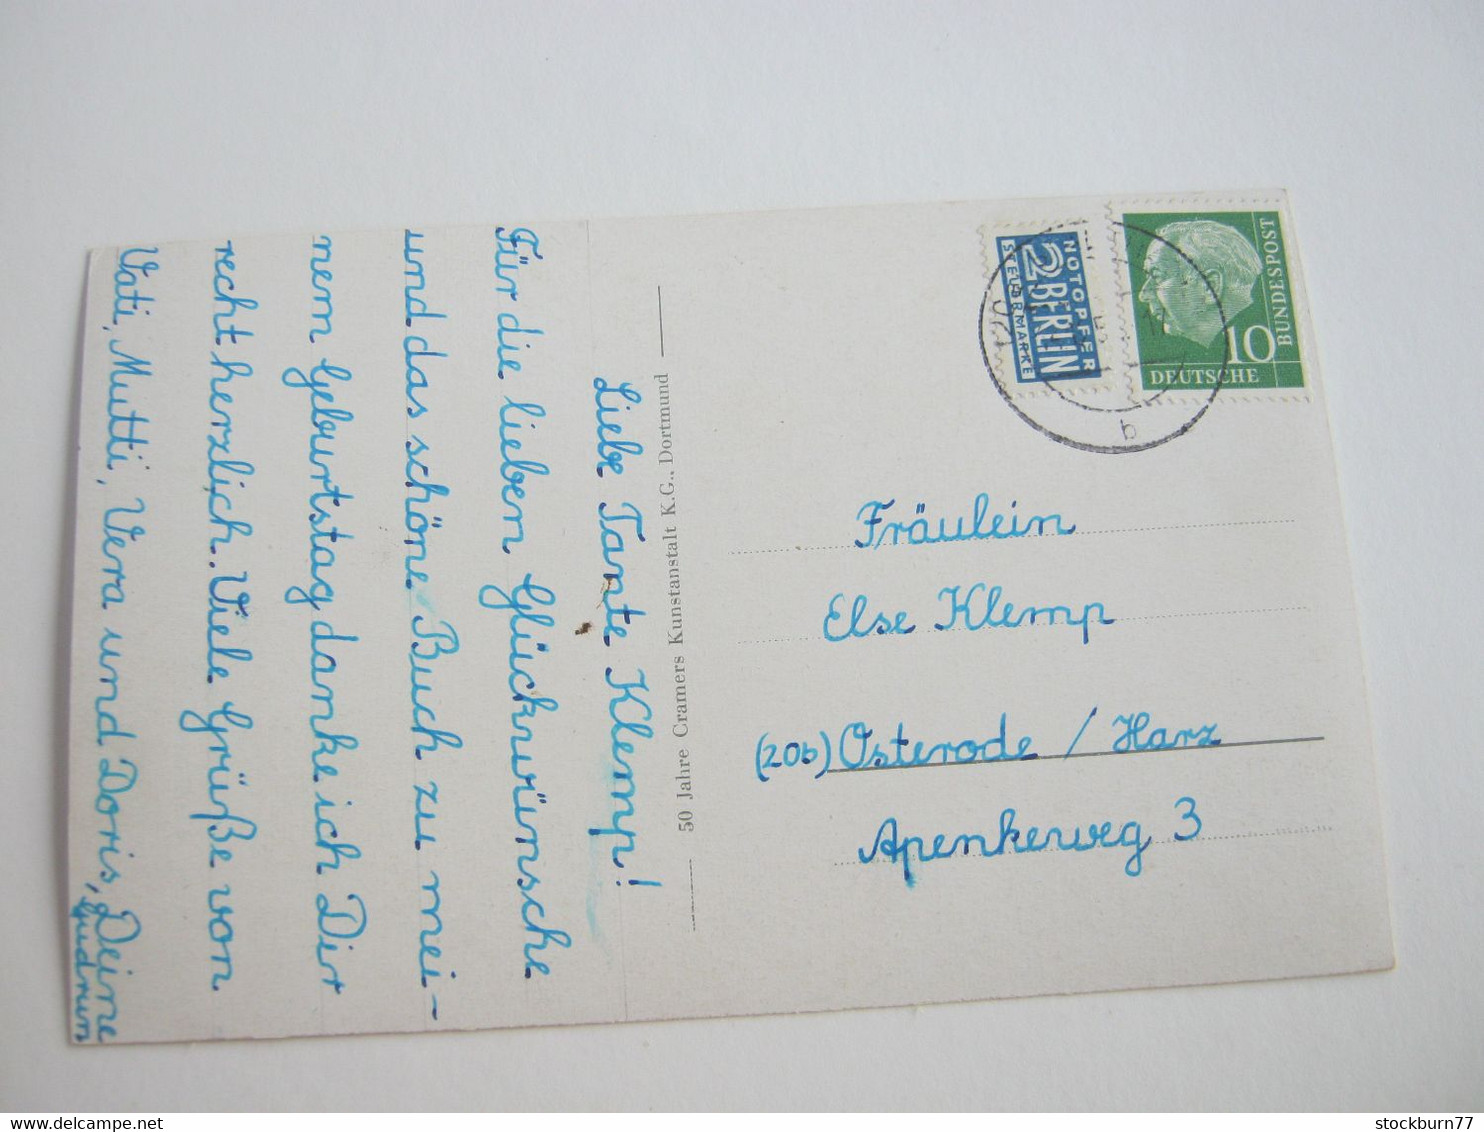 Liebe Tante Klemp!
Für die lieben Glückwünsche
und das schöne Buch zu mei-
nem Geburtstag danke ich Dir
recht herzlich. Viele Grüße von
Vati, Mutti, Vera und Doris, Deine
Gudrun
50 Jahre Cramers Kunstanstalt K.G., Dortmund
NOTOPFER
2 BERLIN
STEUERMARKE
10
DEUTSCHE
BUNDESPOST
Fräulein
Else Klemp
(20b) Osterode / Harz
Apenkerweg 3
stockburn77